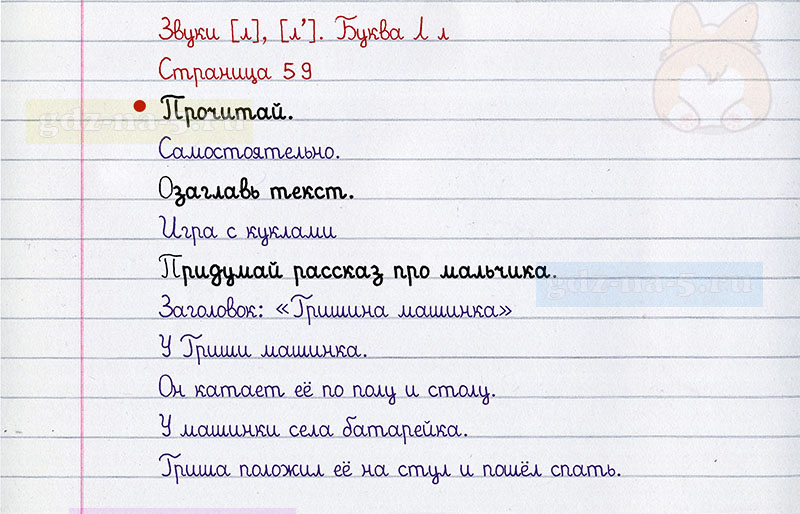 Звуки [л], [л’]. Буква л л
Страница 59
Прочитай.
gdz-na-5.ru
Самостоятельно.
Озаглавь текст.
Игра с куклами
Придумай рассказ про мальчика.
gdz-na-5.ru
Заголовок: «Гришина машинка»
У Гриши машинка.
Он катает её по полу и столу.
У машинки села батарейка.
Гриша положил её на стул и пошёл спать.